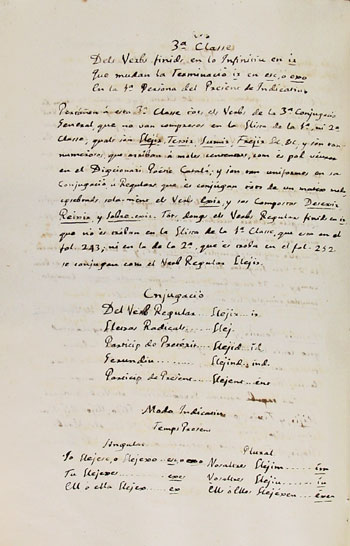 3ª Classe
Dels Verbs finids en lo Infinitiu en ir
Que mudan la Terminació ir en esc, o exo
En la 1ª Persona del Present de Indicatiu
Pertañan á esta 3ª Classe tots els Verbs de la 3ª Conjugació
General, que no van compresos en la Llista de la 1ª, ni 2ª
Classe, quals son Llejir, Texir, Sumir, Frejir &c. &c. y son tan
numerosos, que arriban á moltes centenars, com es pot véurer
en el Diccionari Poétic Catalá, y son tan uniformes en sa
Conjugació
esceptuats solament el Verb Exir, y sos Compostos Desexir
Reixir, y Sobre-exir. Tots, donchs els Verbs Regulars finids en ir
que no es troban en la Llista de la 1ª Classe, que era en el
fol. 243, ni en la de la 2ª, que es troba en el fol. 252
se conjugan com el Verb Regular Llejir.
Conjugació
Del Verb Regular... Llejir.. ir
Lletras Radicals... Llej.
Particip de Pretérit... Llejid.. id.
Gerundiu... Llejind.. ind.
Particip de Present... Llejent.. ent
Modo Indicatiu
Temps Present
Singular
Jo Llejesc, o Llejexo... esc, o exo
Tu Llejexes... exes
Ell o ella Llejex... ex
Plural
Nosaltres Llejim... im
Vosaltres Llejiu... iu
Ells o Elles Llejexen... exen